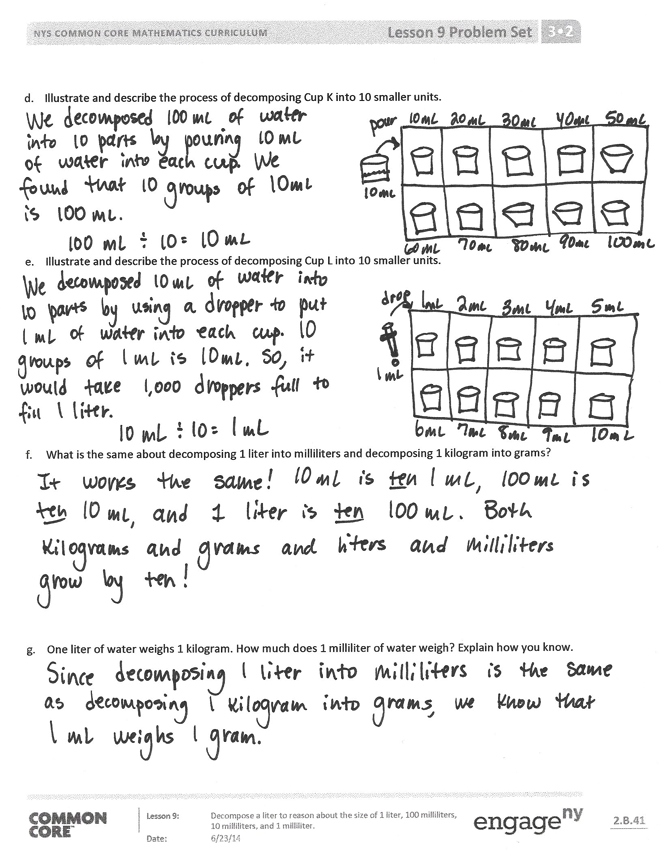 NYS COMMON CORE MATHEMATICS CURRICULUM Lesson 9 Problem Set 3•2
d. Illustrate and describe the process of decomposing Cup K into 10 smaller units.
We decomposed 100 mL of water
into 10 parts by pouring 10 mL
of water into each cup. We
found that 10 groups of 10mL
is 100 mL.
100 mL ÷ 10 = 10 mL
pour 10mL 20mL 30mL 40mL 50mL
10mL
60mL 70mL 80mL 90mL 100mL
e. Illustrate and describe the process of decomposing Cup L into 10 smaller units.
We decomposed 10 mL of water into
10 parts by using a dropper to put
1 mL of water into each cup. 10
groups of 1 mL is 10mL. So, it
would take 1,000 droppers full to
fill 1 liter.
10 mL ÷ 10 = 1 mL
drop 1mL 2mL 3mL 4mL 5mL
1mL
6mL 7mL 8mL 9mL 10mL
f. What is the same about decomposing 1 liter into milliliters and decomposing 1 kilogram into grams?
It works the same! 10 mL is ten 1 mL, 100 mL is
ten 10 mL, and 1 liter is ten 100 mL. Both
kilograms and grams and liters and milliliters
grow by ten!
g. One liter of water weighs 1 kilogram. How much does 1 milliliter of water weigh? Explain how you know.
Since decomposing 1 liter into milliliters is the same
as decomposing 1 kilogram into grams, we know that
1 mL weighs 1 gram.
COMMON
CORE™
Lesson 9: Decompose a liter to reason about the size of 1 liter, 100 milliliters,
10 milliliters, and 1 milliliter.
Date: 6/23/14
engage ny
2.B.41